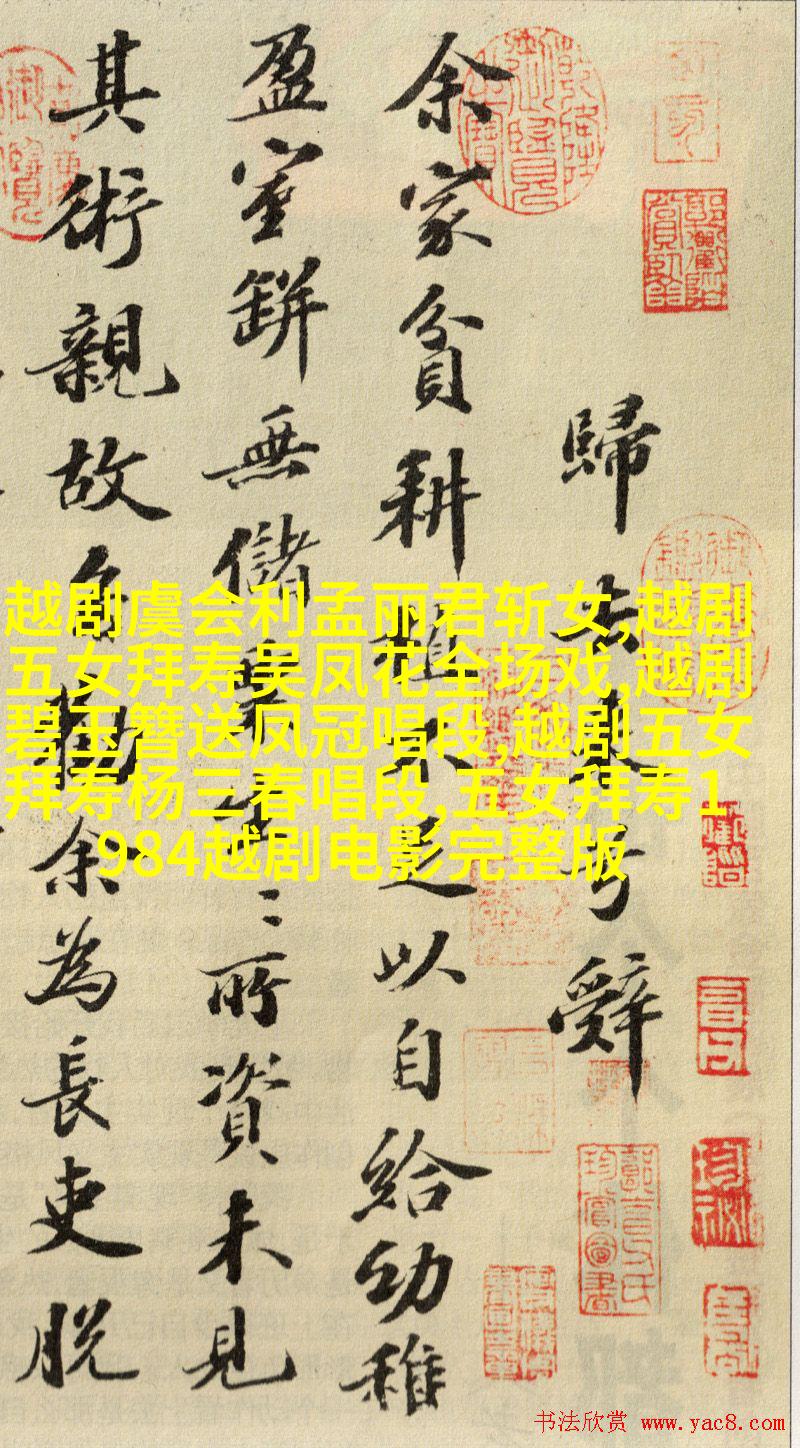 歸去来兮辭
余家貧耕植不足以自給幼稚
盈室缾無儲粟生〻所資未見
其術親故多勸余為長吏脱
越剧虞会利孟丽君斩女,越剧
五女拜寿吴凤花全场戏,越剧
碧玉簪送凤冠唱段,越剧五女
拜寿杨三春唱段,五女拜寿1
984越剧电影完整版
书法欣赏 www.yac8.com